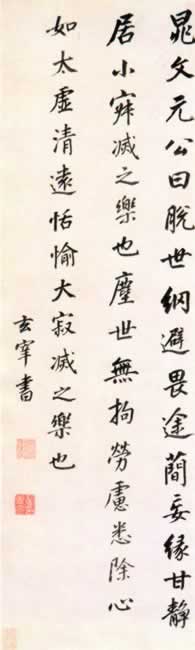 晁文元公曰脫世網避畏途簡妄緣甘靜
居小寂滅之樂也塵世無拘勞慮悉除心
如太虛清遠恬愉大寂滅之樂也
玄宰書